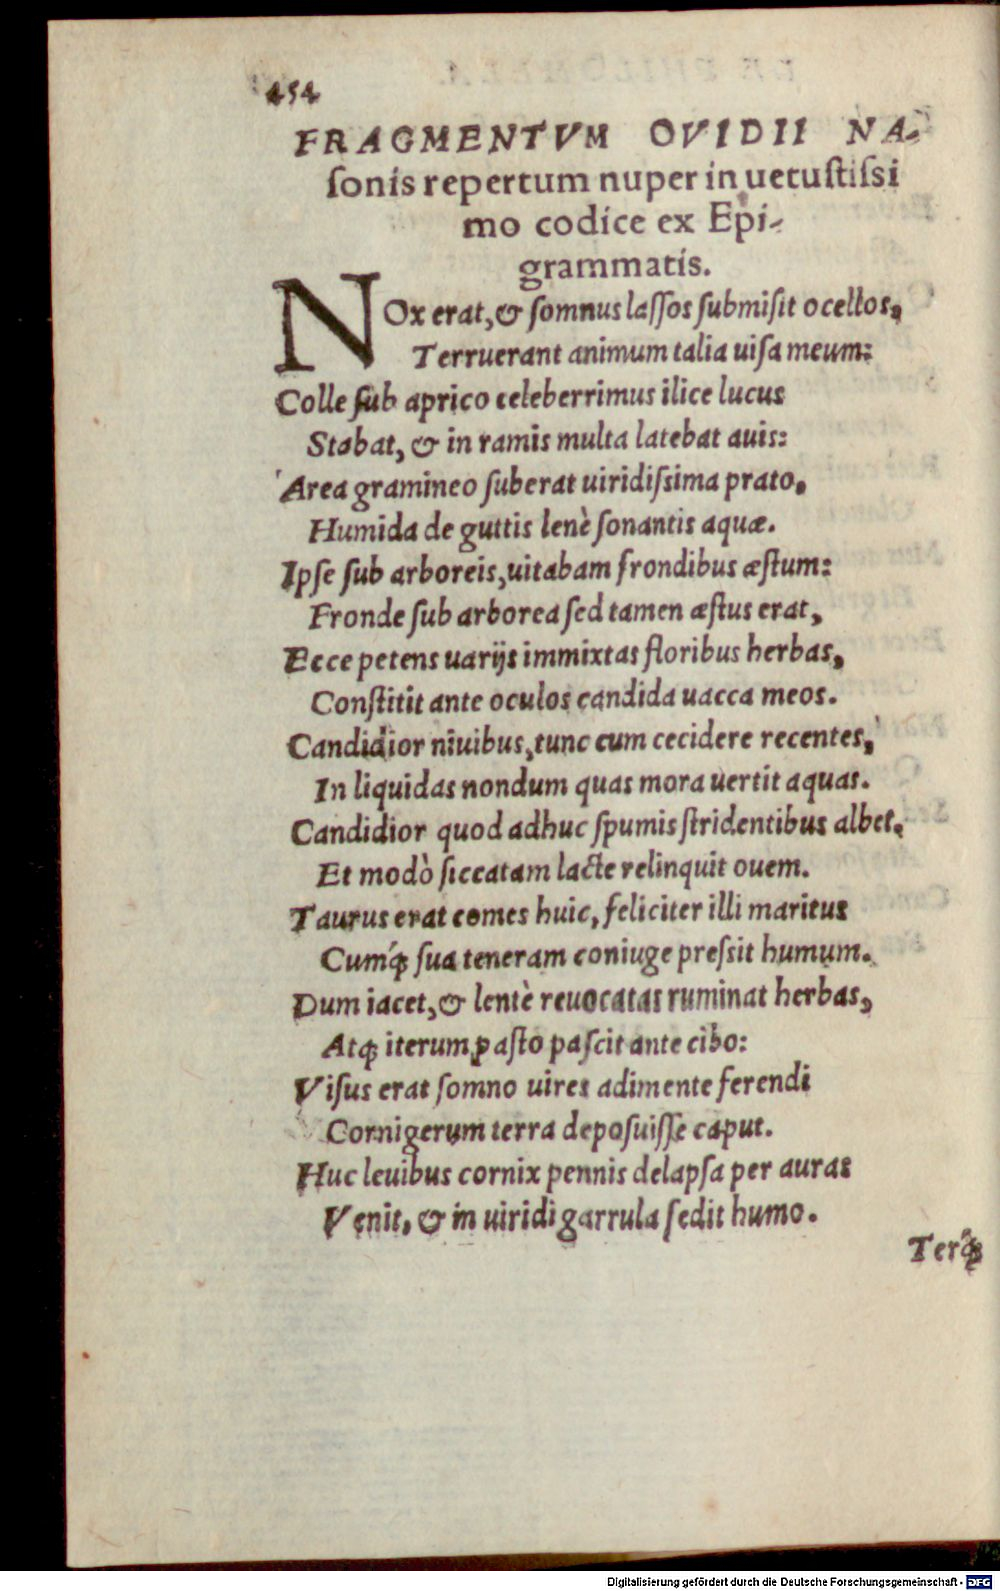 454
FRAGMENTVM OVIDII NA-
ſonis repertum nuper in uetuſtiſsi
mo codice ex Epi-
grammatis.
NOx erat, & ſomnus laſſos ſubmiſit ocellos,
Terruerant animum talia uiſa meum:
Colle ſub aprico celeberrimus ilice lucus
Stabat, & in ramis multa latebat auis:
Area gramineo ſuberat uiridiſsima prato,
Humida de guttis lenè ſonantis aquæ.
Ipſe ſub arboreis, uitabam frondibus æſtum:
Fronde ſub arborea ſed tamen æſtus erat,
Ecce petens uarijs immixtas floribus herbas,
Conſtitit ante oculos candida uacca meos.
Candidior niuibus, tunc cum cecidere recentes,
In liquidas nondum quas mora uertit aquas.
Candidior quod adhuc ſpumis ſtridentibus albet,
Et modò ſiccatam lacte relinquit ouem.
Taurus erat comes huic, feliciter illi maritus
Cumq́ꝫ ſua teneram coniuge preſsit humum.
Dum iacet, & lentè reuocatas ruminat herbas,
Atqꝫ iterum paſto paſcit ante cibo:
Viſus erat ſomno uires adimente ferendi
Cornigerum terra depoſuiſſe caput.
Huc leuibus cornix pennis delapſa per auras
Venit, & in uiridi garrula ſedit humo.
Terq́ꝫ
Digitalisierung gefördert durch die Deutsche Forschungsgemeinschaft - DFG